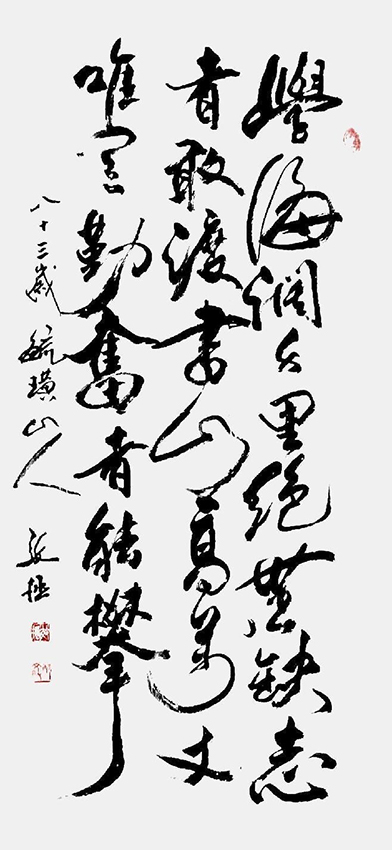 學海濶千里絕無缺志
者敢渡書山高萬丈
唯勤奮者能攀
八十三歲毓璜山人